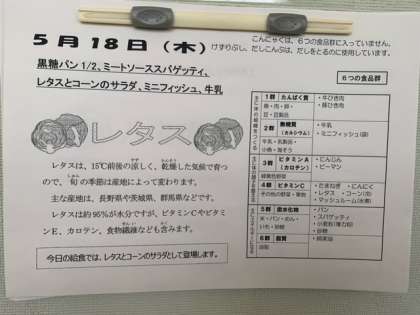 5月18日（木）
こんにゃくは、6つの食品群に入っていません。
けずりぶし、だしこんぶは、だしをとるのに使用しています。
黒糖パン 1/2、ミートソーススパゲッティ、
レタスとコーンのサラダ、ミニフィッシュ、牛乳
レタス
レタスは、15℃前後の涼しく、乾燥した気候で育つ
ので、旬の季節は産地によって変わります。
主な産地は、長野県や茨城県、群馬県などです。
レタスは約95％が水分ですが、ビタミンCやビタミ
ンE、カロテン、食物繊維なども含みます。
今日の給食では、レタスとコーンのサラダとして登場します。
6つの食品群
1群 たんぱく質
魚・肉・卵・
豆・豆製品
・牛ひき肉
・豚ひき肉
2群 無機質
(カルシウム)
牛乳・乳製品・
小魚・海そう
・牛乳
・ミニフィッシュ(袋)
3群 ビタミンA
(カロテン)
緑黄色野菜
・にんじん
・ピーマン
4群 ビタミンC
その他の野菜・果物
・たまねぎ ・にんにく
・レタス ・コーン(冷)
・マッシュルーム(水煮)
5群 炭水化物
米・パン・めん・
いも・砂糖
・パン
・スパゲティ
・小麦粉(薄力粉)
・砂糖
6群 脂質
油脂